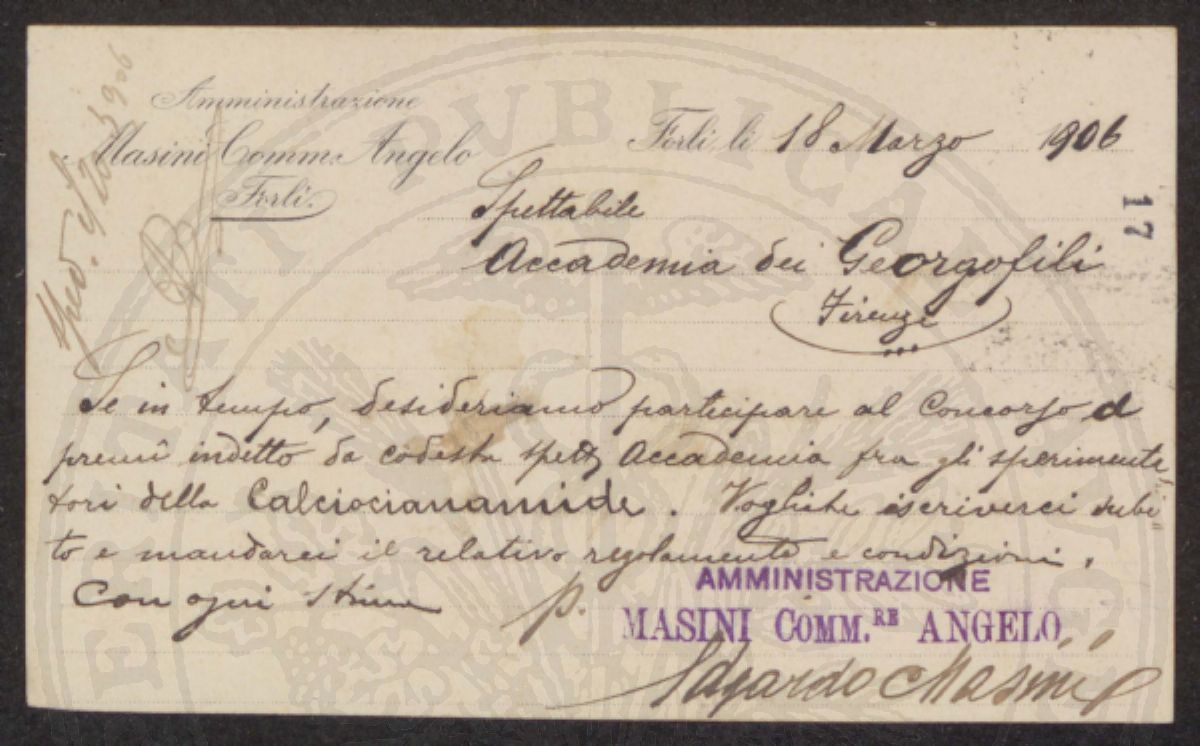 Amministrazione
Masini Comm. Angelo
Forlì.
Forlì, lì 18 Marzo 1906
Spettabile
Accademia dei Georgofili
Firenze
Se in tempo, desideriamo participare al Concorso a
premî indetto da codesta Spett. Accademia fra gli sperimenta
tori della Calciocianamide. Vogliate iscriverci subi
to e mandarci il relativo regolamento e condizioni.
Con ogni stima
p. AMMINISTRAZIONE
MASINI COMM.RE ANGELO
Edgardo Masini
17